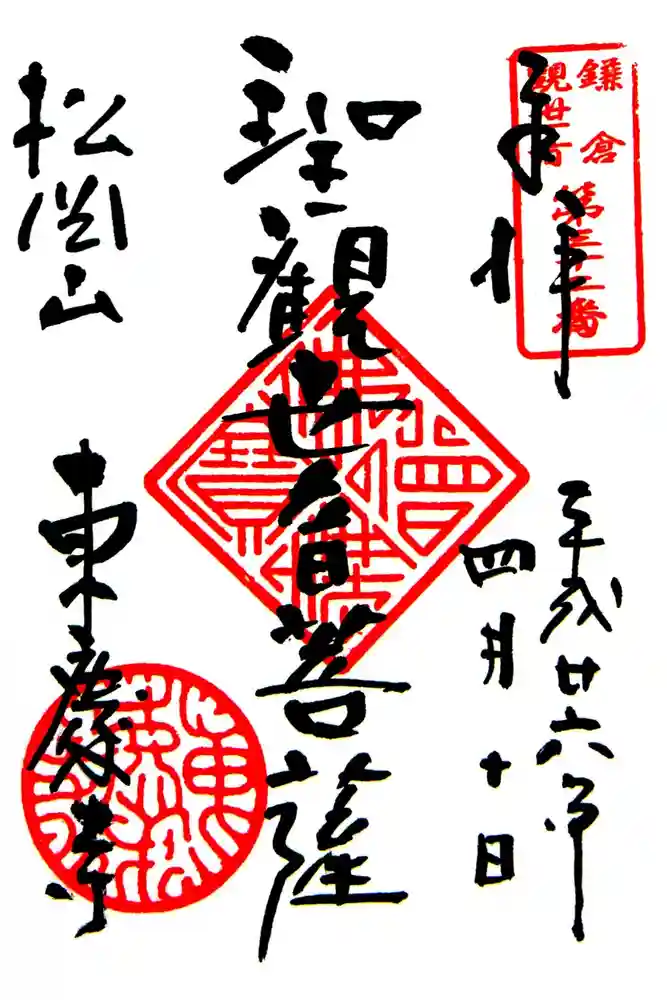 鎌倉
観世音
第三十二番
奉拝
平成廿六年
四月十日
聖観世音菩薩
松岡山
東慶寺